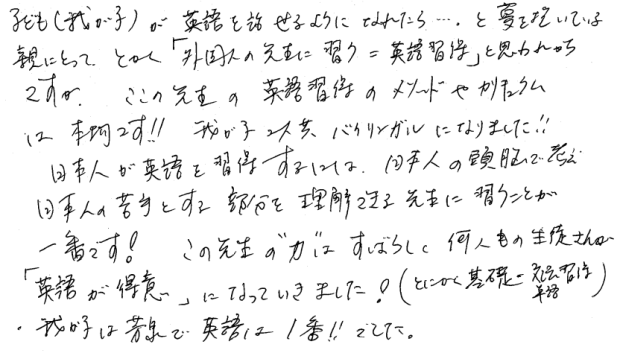 子ども(我が子)が 英語を話せるようになれたら…。と夢を抱いている
親にとって とかく「外国人の先生に習う=英語習得」と思われがち
ですが、ここの先生の英語習得のメソッドやカリキュラム
は本物です!! 我が子2人共バイリンガルになりました!!
日本人が英語を習得するには、日本人の頭脳で考え
日本人の苦手とする部分を理解できる先生に習うことが
一番です! この先生の"力"はすばらしく何人もの生徒さんが
「英語が得意」になっていきました!(とにかく基礎=文法習得 単語)
・我が子は で英語は1番!!でした。